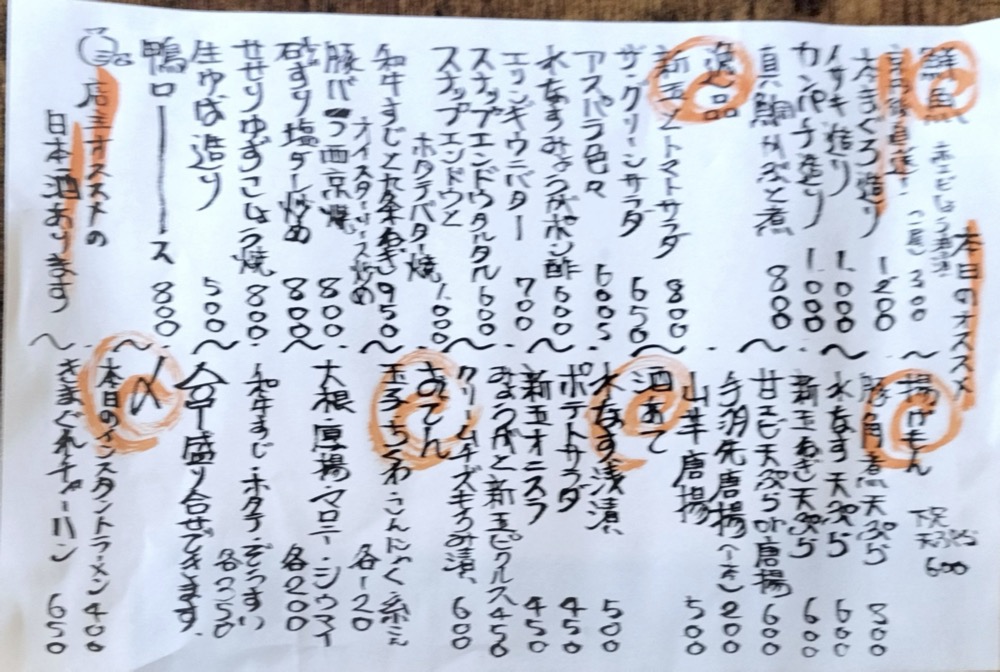 本日のオススメ
鮮魚
赤エビしょう油漬
(一尾) 300
本まぐろ造り 1200
イサキ造り 1.000
カンパチ造り 1.000
真鯛かぶと煮 800
逸品
新玉とトマトサラダ 800
ザ・グリーンサラダ 650
アスパラ色々 600
水なすみょうがポン酢 600
エリンギウニバター 700
スナップエンドウタルタル 600
スナップエンドウと
ホタテバター焼 1.000
和牛すじと九条ねぎ 950
オイスターソース炒め
豚バラ西京焼 800
砂ずり塩ダレ炒め 800
せせりゆずこしょう焼 800
生ゆば造り 500
鴨ロース 800
店主オススメの
日本酒あります
揚げもん
下足
天ぷら
600
豚の角煮天ぷら 800
水なす天ぷら 600
新玉ねぎ天ぷら 600
甘エビ天ぷらor唐揚 600
手羽先唐揚(一本) 200
山芋唐揚 500
酒あて
水なす浅漬 500
ポテトサラダ 450
新玉オニスラ 450
みょうがと新玉ピクルス 450
クリームチーズきざみ漬 600
おでん
玉子・ちくわ・こんにゃく・糸こん
各120
大根・厚揚・マロニー・シウマイ
各200
和牛すじ・ホタテ・ぞうすい
各350
盛り合せできます。
〆
本日のインスタントラーメン 400
きまぐれチャーハン 650